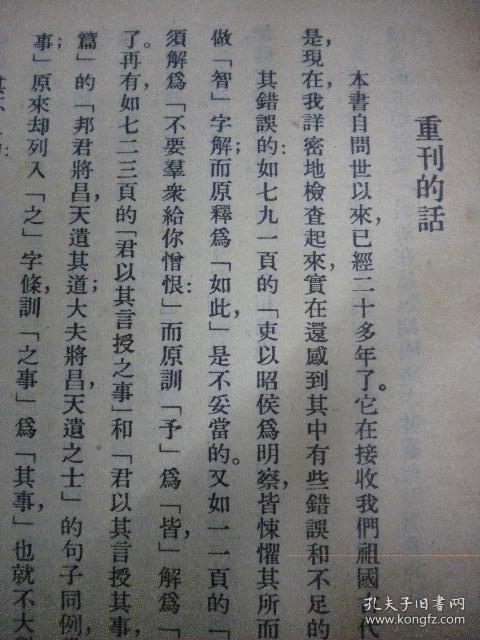 重刊的話
本書自問世以來,已經二十多年了。它在接收我們祖國古代
是,現在,我詳密地檢查起來,實在還感到其中有些錯誤和不足的
其錯誤的:如七九一頁的「吏以昭侯爲明察,皆悚懼其所而
做「智」字解;而原釋爲「如此」,是不妥當的。又如一一頁的「
須解爲「不要羣衆給你憎恨:」而原訓「予」爲「皆」,解爲「
了。再有如七二三頁的「君以其言授之事」和「君以其言授其事,
篇」的「邦君將昌,天遺其道;大夫將昌,天遺之士」的句子同例,
事;」原來却列入「之」字條,訓「之事」爲「其事」,也就不大
孔夫子旧书网
www.kongfz.com